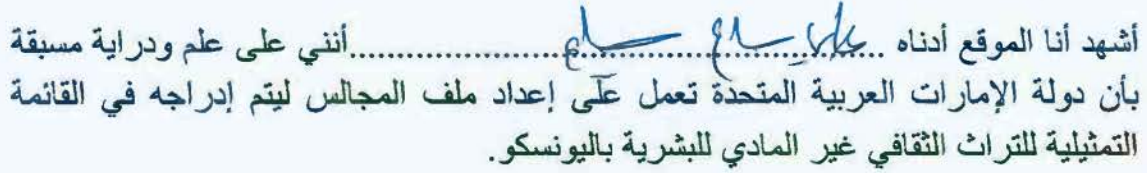 أشهد أنا الموقع أدناه ....................................................أنني على علم ودراية مسبقة
بأن دولة الإمارات العربية المتحدة تعمل على إعداد ملف المجالس ليتم إدراجه في القائمة
التمثيلية للتراث الثقافي غير المادي للبشرية باليونسكو.